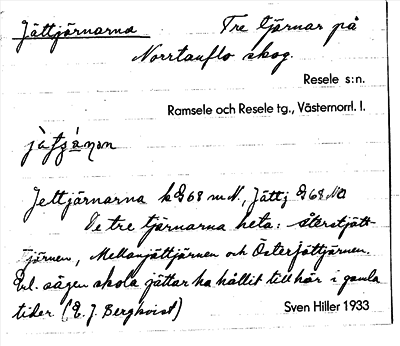 Jättjärnarna Tre tjärnar på
Norrtanflo skog.
Resele s:n.
Ramsele och Resele tg., Västernorrl. l.
Jettjärnarna k G68 m N, Jättj G68 NO
De tre tjärnarna heta: Återstjätt-
tjärnen, Mellanjättjärnen och Österjättjärnen.
Enl. sägen skola jättar ha hållit till här i gamla
tider. (E. J. Bergkvist) Sven Hiller 1933